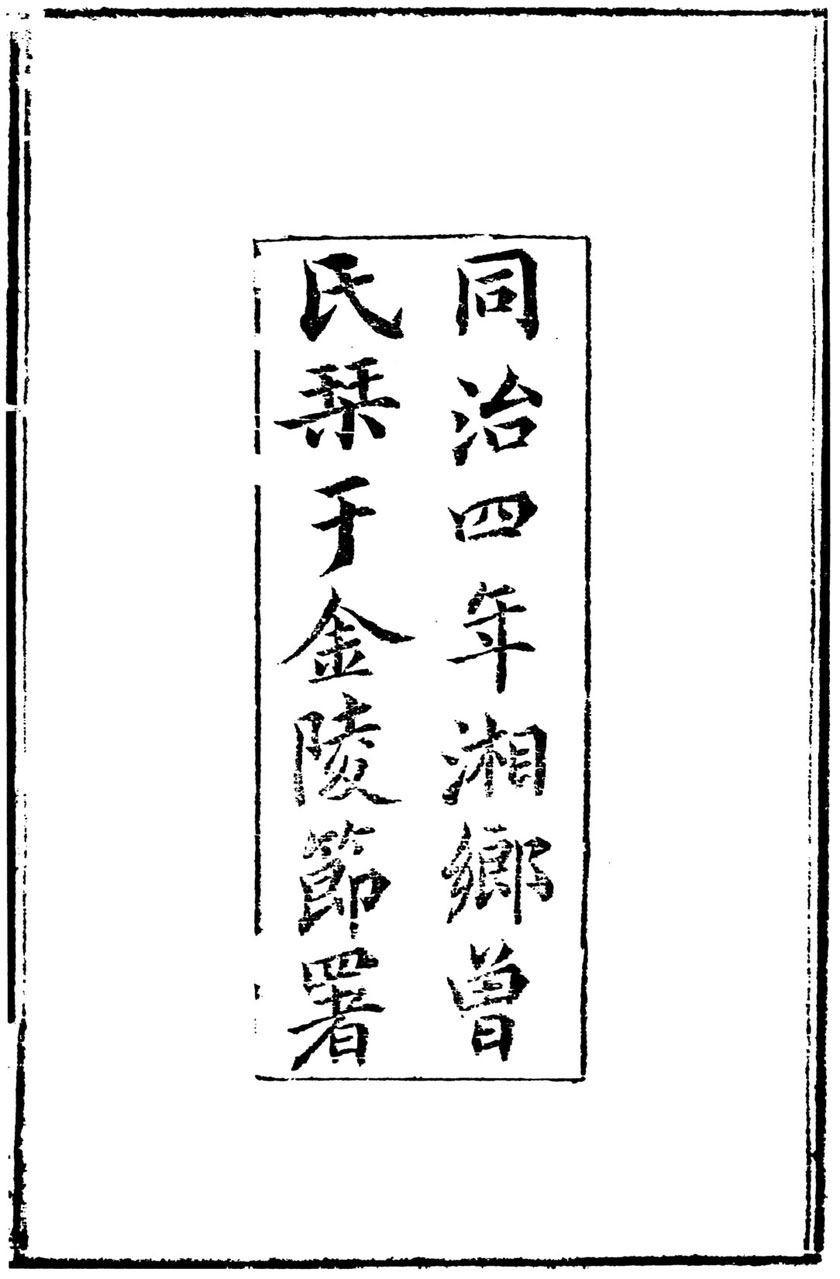 同治四年湘鄉曾
民栞于金陵節署